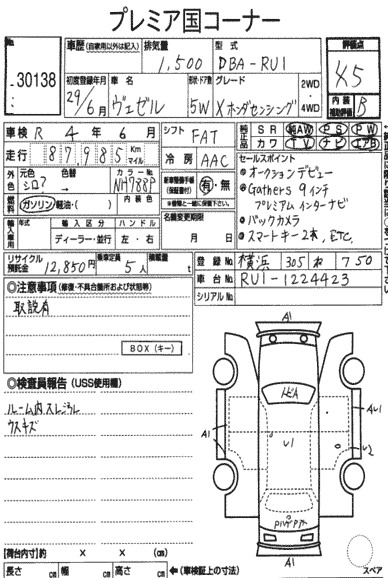 プレミア国コーナー
No. 30138
車歴 (自家用以外は記入)
排気量 1,500
型式 DBA-RU1
評価点 4.5
初度登録年月 29/6月
車名 ヴェゼル
形状・ドア数 5W
グレード X ホンダセンシング
2WD・4WD
内装補助評価 B
車検 R 4年 6月
シフト FAT
純正品 SR 純AW PS PW
カワ TV ナビ エアB
走行 87985 Km マイル
冷房 AAC
セールスポイント
・オークションデビュー
・Gathers 9インチ
プレミアムインターナビ
・バックカメラ
・スマートキー2本, ETC.
外色 元色 シロ
色替
カラーNo. NH788P
内装色
新車整備手帳(保証書付) 有・無
燃料 ガソリン 軽油・( )
名義変更期限
月 日
輸入車用 年式
輸入区分 ディーラー・並行
ハンドル 左・右
リサイクル預託金 12,850円
乗車定員 5人
積載量 t
登録No. 横浜 305 ね 750
車台No. RU1-1224423
シリアルNo.
◎注意事項 (修復・不具合箇所および状態等)
取説有
BOX(キー)
◎検査員報告 (USS使用欄)
ルーム内スレ
ウスキズ
A1
トビA
A1
AU1
U1
U2
A1
【荷台内寸】約 × × (cm)
長さ cm 幅 cm 高さ cm
←(車検証上の寸法)
スペア